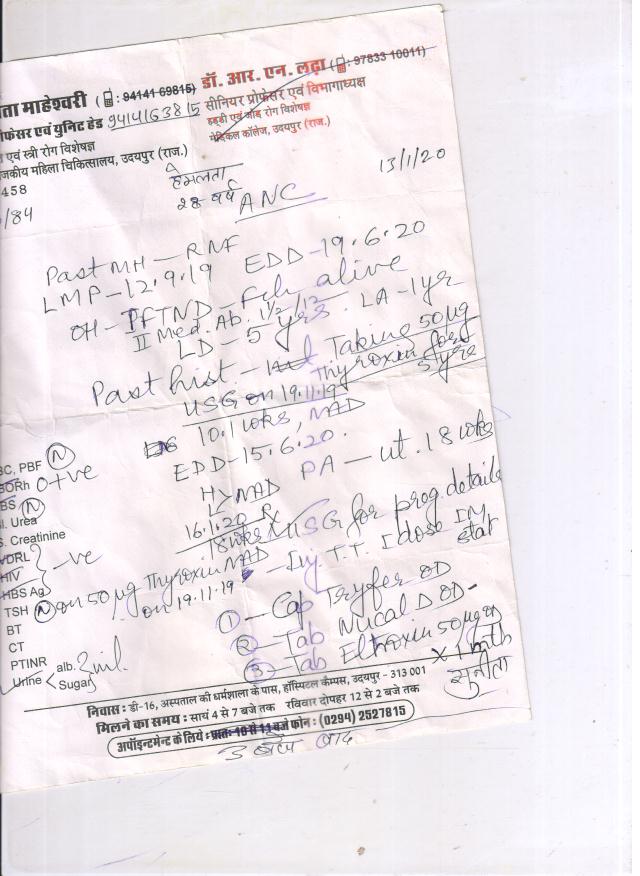 ता माहेश्वरी (: 94141 69815) डॉ. आर. एन. लढ़ा (: 97833 10011)
फेसर एवं यूनिट हेड 9414163815 सीनियर प्रोफेसर एवं विभागाध्यक्ष
एवं स्त्री रोग विशेषज्ञ हड्डी एवं जोड़ रोग विशेषज्ञ
जकीय महिला चिकित्सालय, उदयपुर (राज.) मेडिकल कॉलेज, उदयपुर (राज.)
458
/84
हेमलता 13/1/20
28 वर्ष ANC
Past MH - RNF
LMP - 12.9.19 EDD - 19.6.20
OH - I FTND - Fch alive
II Med. Ab. 1 1/2/12
LD - 5 yrs. LA - 1yr
Past hist - Taking 50 µg
Thyroxin for
5 yrs
USG on 19.11.19
10.1 wks, NAD
EDD - 15.6.20.
PA - ut. 18 wks
H NAD
L
16.1.20 Rx
18 wks USG for preg. details
BC, PBF N
BORh O+ve
BS N
l. Urea
S. Creatinine
VDRL
HIV } -ve
HBS Ag
TSH N on 50 µg Thyroxin NAD
on 19.11.19
BT
CT
PTINR
Urine < alb. Sugar } nil
- Inj. T.T. I dose IM stat
1 - Cap Tryfer OD
2 - Tab Nucal D OD -
3 - Tab Eltroxin 50 µg OD
x 1 mth
सुनीता
निवास : डी-16, अस्पताल की धर्मशाला के पास, हॉस्पिटल कैम्पस, उदयपुर - 313 001
मिलने का समय : सायं 4 से 7 बजे तक रविवार दोपहर 12 से 2 बजे तक
अपॉइन्टमेन्ट के लिये : प्रातः 10 से 11 बजे फोन : (0294) 2527815
3 बजे बाद